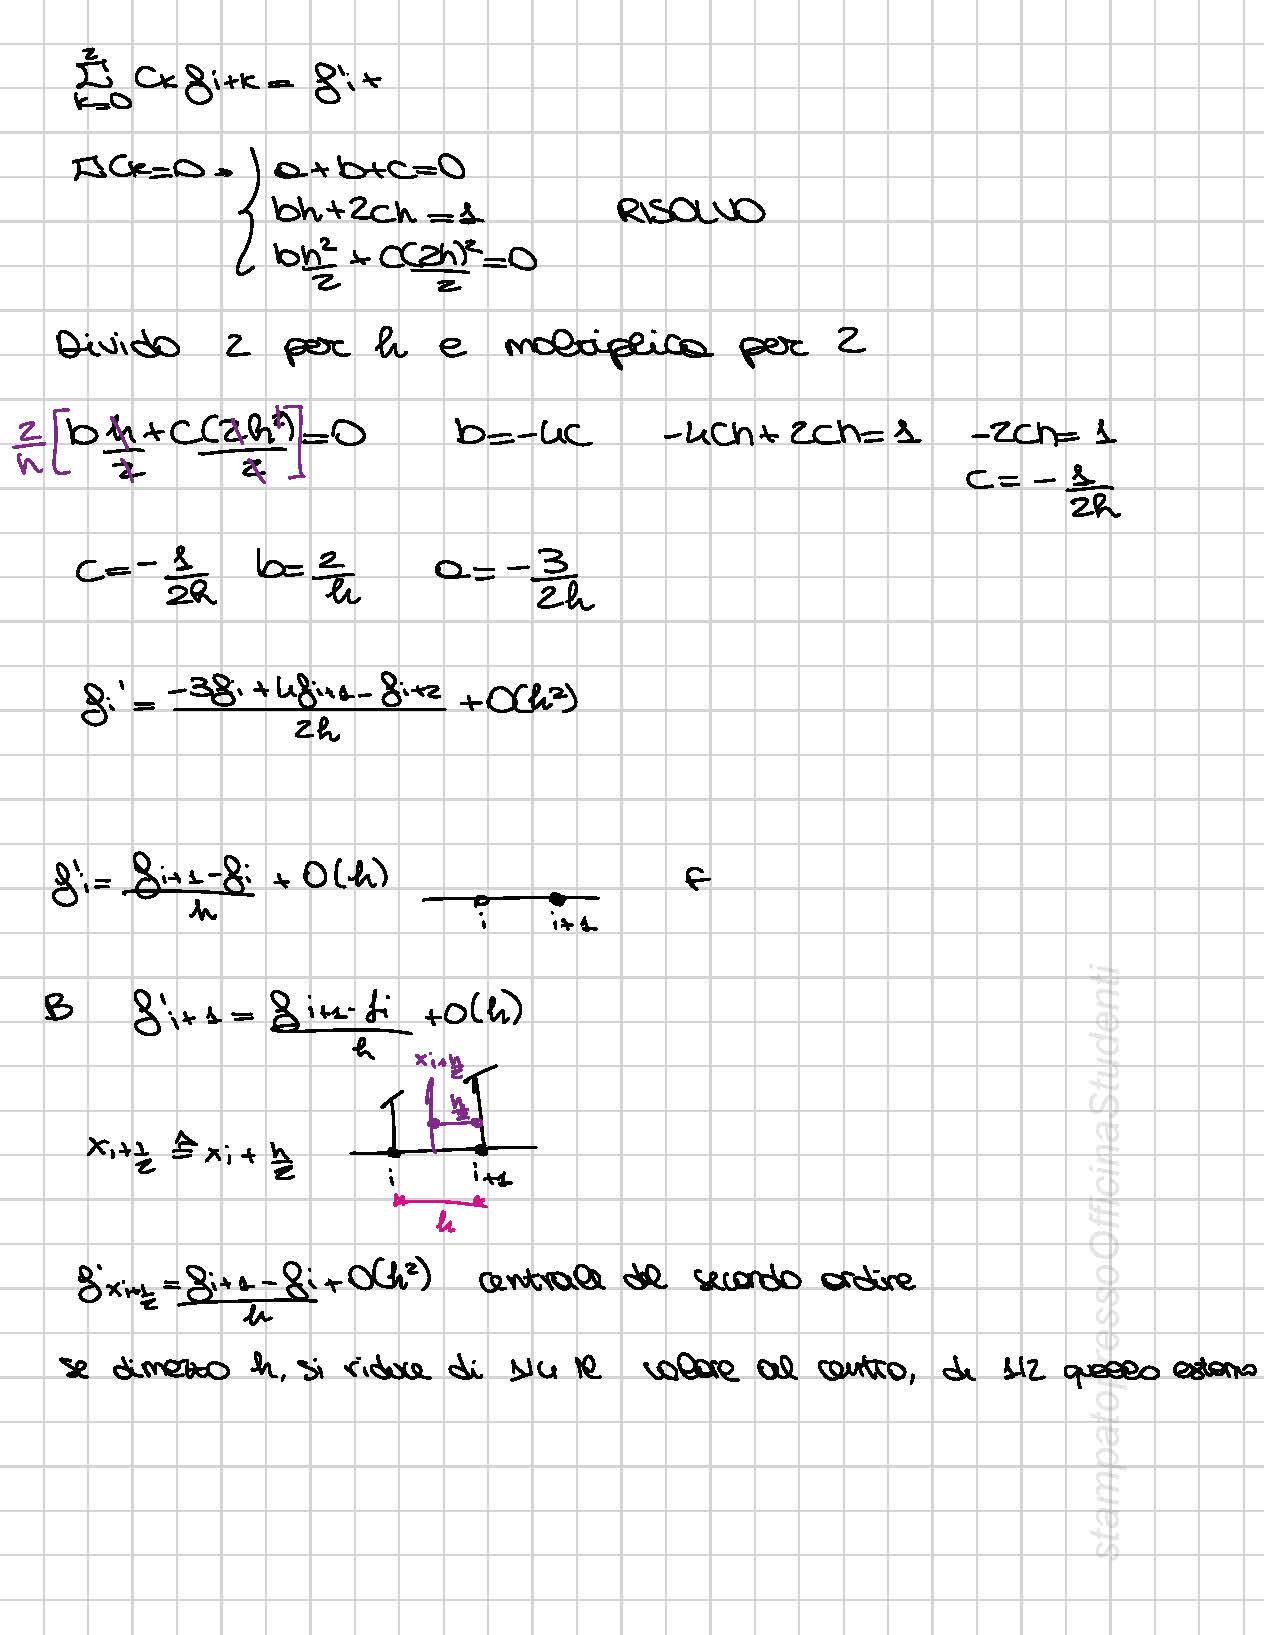 2
Σ Ck fi+k = f'i +
k=0
ΣCk=0 → { a+b+c=0
bh+2ch=1 RISOLVO
b h²/2 + c (2h)²/2 = 0
Divido 2 per h e moltiplico per 2
2/h [b h/2 + c (2h²)/2] = 0 b=-4c -4ch+2ch=1 -2ch=1
c = - 1/2h
c = - 1/2h b = 2/h a = - 3/2h
fi' = (-3fi + 4fi+1 - fi+2)/2h + O(h²)
f'i = (fi+1 - fi)/h + O(h) F
i i+1
B f'i+1 = (fi+1 - fi)/h + O(h)
xi+h/2
h/2
xi+1/2 ≜ xi + h/2
i i+1
h
f'xi+1/2 = (fi+1 - fi)/h + O(h²) centrale del secondo ordine
se dimezzo h, si riduce di 1/4 il valore al centro, di 1/2 quello esterno
stampatopressoOfficinaStudenti